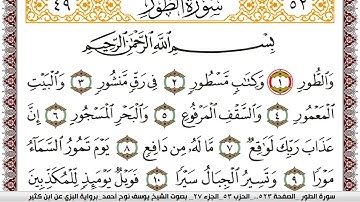 ٤٩ سُورَةُ الطُّورِ ٥٢
بِسْمِ اللَّهِ الرَّحْمَٰنِ الرَّحِيمِ
وَالطُّورِ ١ وَكِتَابٍ مَّسْطُورٍ ٢ فِي رَقٍّ مَّنشُورٍ ٣ وَالْبَيْتِ
الْمَعْمُورِ ٤ وَالسَّقْفِ الْمَرْفُوعِ ٥ وَالْبَحْرِ الْمَسْجُورِ ٦ إِنَّ
عَذَابَ رَبِّكَ لَوَاقِعٌ ٧ مَّا لَهُ مِن دَافِعٍ ٨ يَوْمَ تَمُورُ السَّمَاءُ
مَوْرًا ٩ وَتَسِيرُ الْجِبَالُ سَيْرًا ١٠ فَوَيْلٌ يَوْمَئِذٍ لِّلْمُكَذِّبِينَ
سورة الطور الصفحة ٥٢٣ .. الحزب ٥٣ .الجزء ٢٧ .. بصوت الشيخ يوسف نوح احمد برواية البزي عن ابن كثير